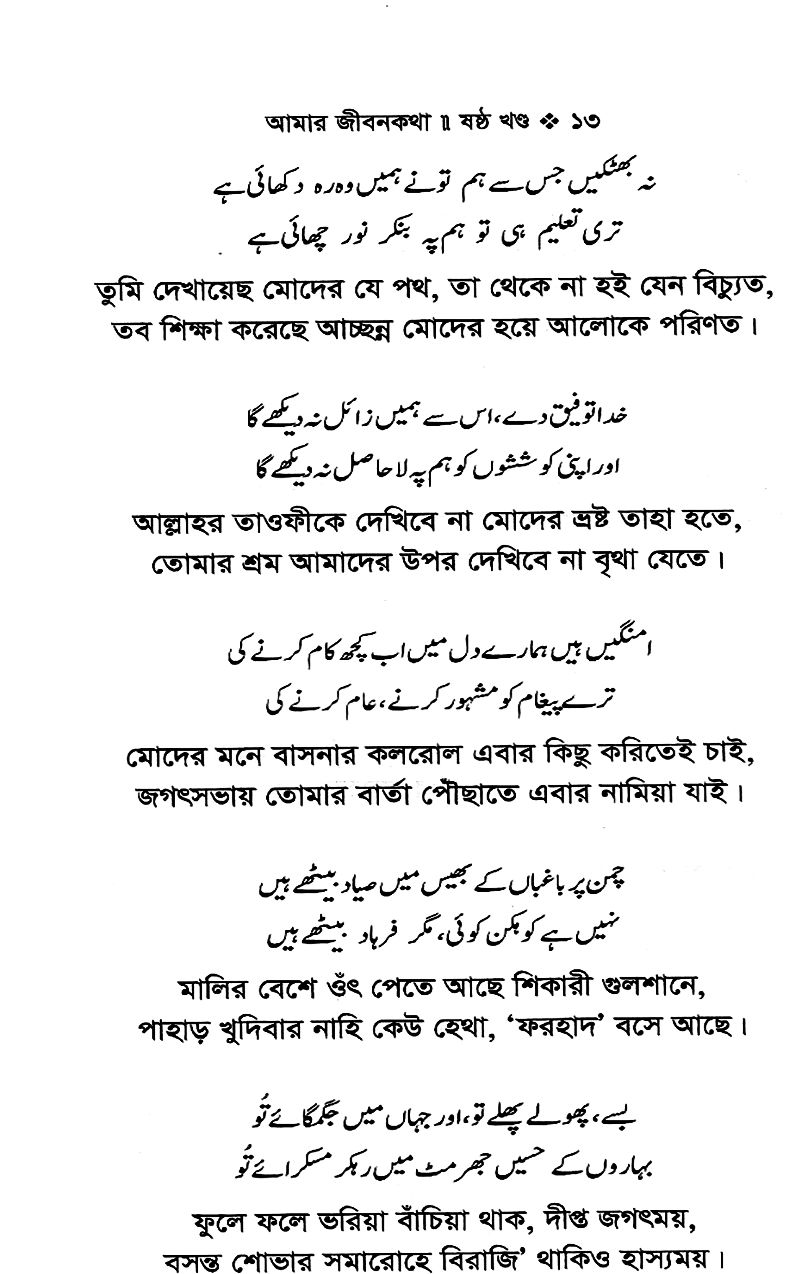 আমার জীবনকথা ॥ ষষ্ঠ খণ্ড ❖ ১৩
نہ بھٹکیں جس سے ہم تو نے ہمیں وہ رہ دکھائی ہے
تری تعلیم ہی تو ہم پہ بنکر نور چھائی ہے
তুমি দেখায়েছ মোদের যে পথ, তা থেকে না হই যেন বিচ্যুত,
তব শিক্ষা করেছে আচ্ছন্ন মোদের হয়ে আলোকে পরিণত।
خدا توفیق دے، اس سے ہمیں زائل نہ دیکھے گا
اور اپنی کوششوں کو ہم پہ لا حاصل نہ دیکھے گا
আল্লাহর তাওফীকে দেখিবে না মোদের ভ্রষ্ট তাহা হতে,
তোমার শ্রম আমাদের উপর দেখিবে না বৃথা যেতে।
امنگیں ہیں ہمارے دل میں اب کچھ کام کرنے کی
ترے پیغام کو مشہور کرنے، عام کرنے کی
মোদের মনে বাসনার কলরোল এবার কিছু করিতেই চাই,
জগৎসভায় তোমার বার্তা পৌঁছাতে এবার নামিয়া যাই।
چمن پر باغباں کے بھیس میں صیاد بیٹھے ہیں
نہیں ہے کوہکن کوئی، مگر فرہاد بیٹھے ہیں
মালির বেশে ওঁৎ পেতে আছে শিকারী গুলশানে,
পাহাড় খুদিবার নাহি কেউ হেথা, ‘ফরহাদ’ বসে আছে।
بسے، پھولے پھلے تو، اور جہاں میں جگمگائے تُو
بہاروں کے حسیں جھرمٹ میں رہکر مسکرائے تُو
ফুলে ফলে ভরিয়া বাঁচিয়া থাক, দীপ্ত জগৎময়,
বসন্ত শোভার সমারোহে বিরাজি’ থাকিও হাস্যময়।